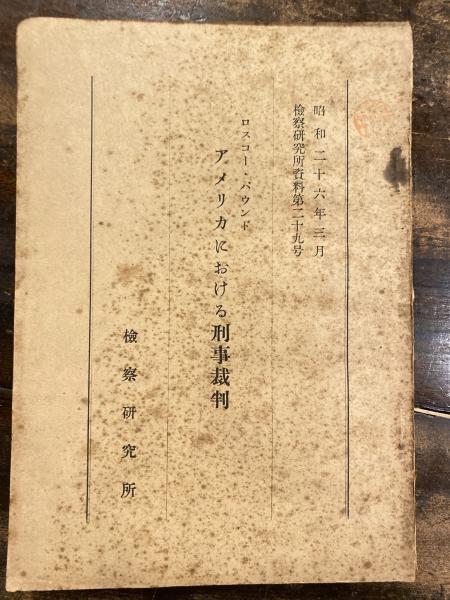 昭和二十六年三月
檢察研究所資料第二十九号
ロスコー・パウンド
アメリカにおける刑事裁判
檢察研究所